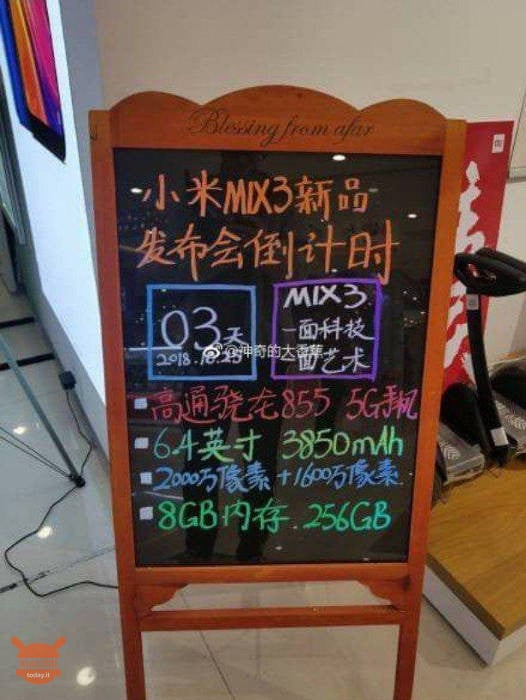 Blessing from afar
小米MIX3新品
发布会倒计时
03天
2018.10.25
MIX 3
一面科技
一面艺术
@神奇的大香蕉
高通骁龙855 5G手机
6.4英寸 3850mAh
2000万像素+1600万像素
8GB内存.256GB
today.it